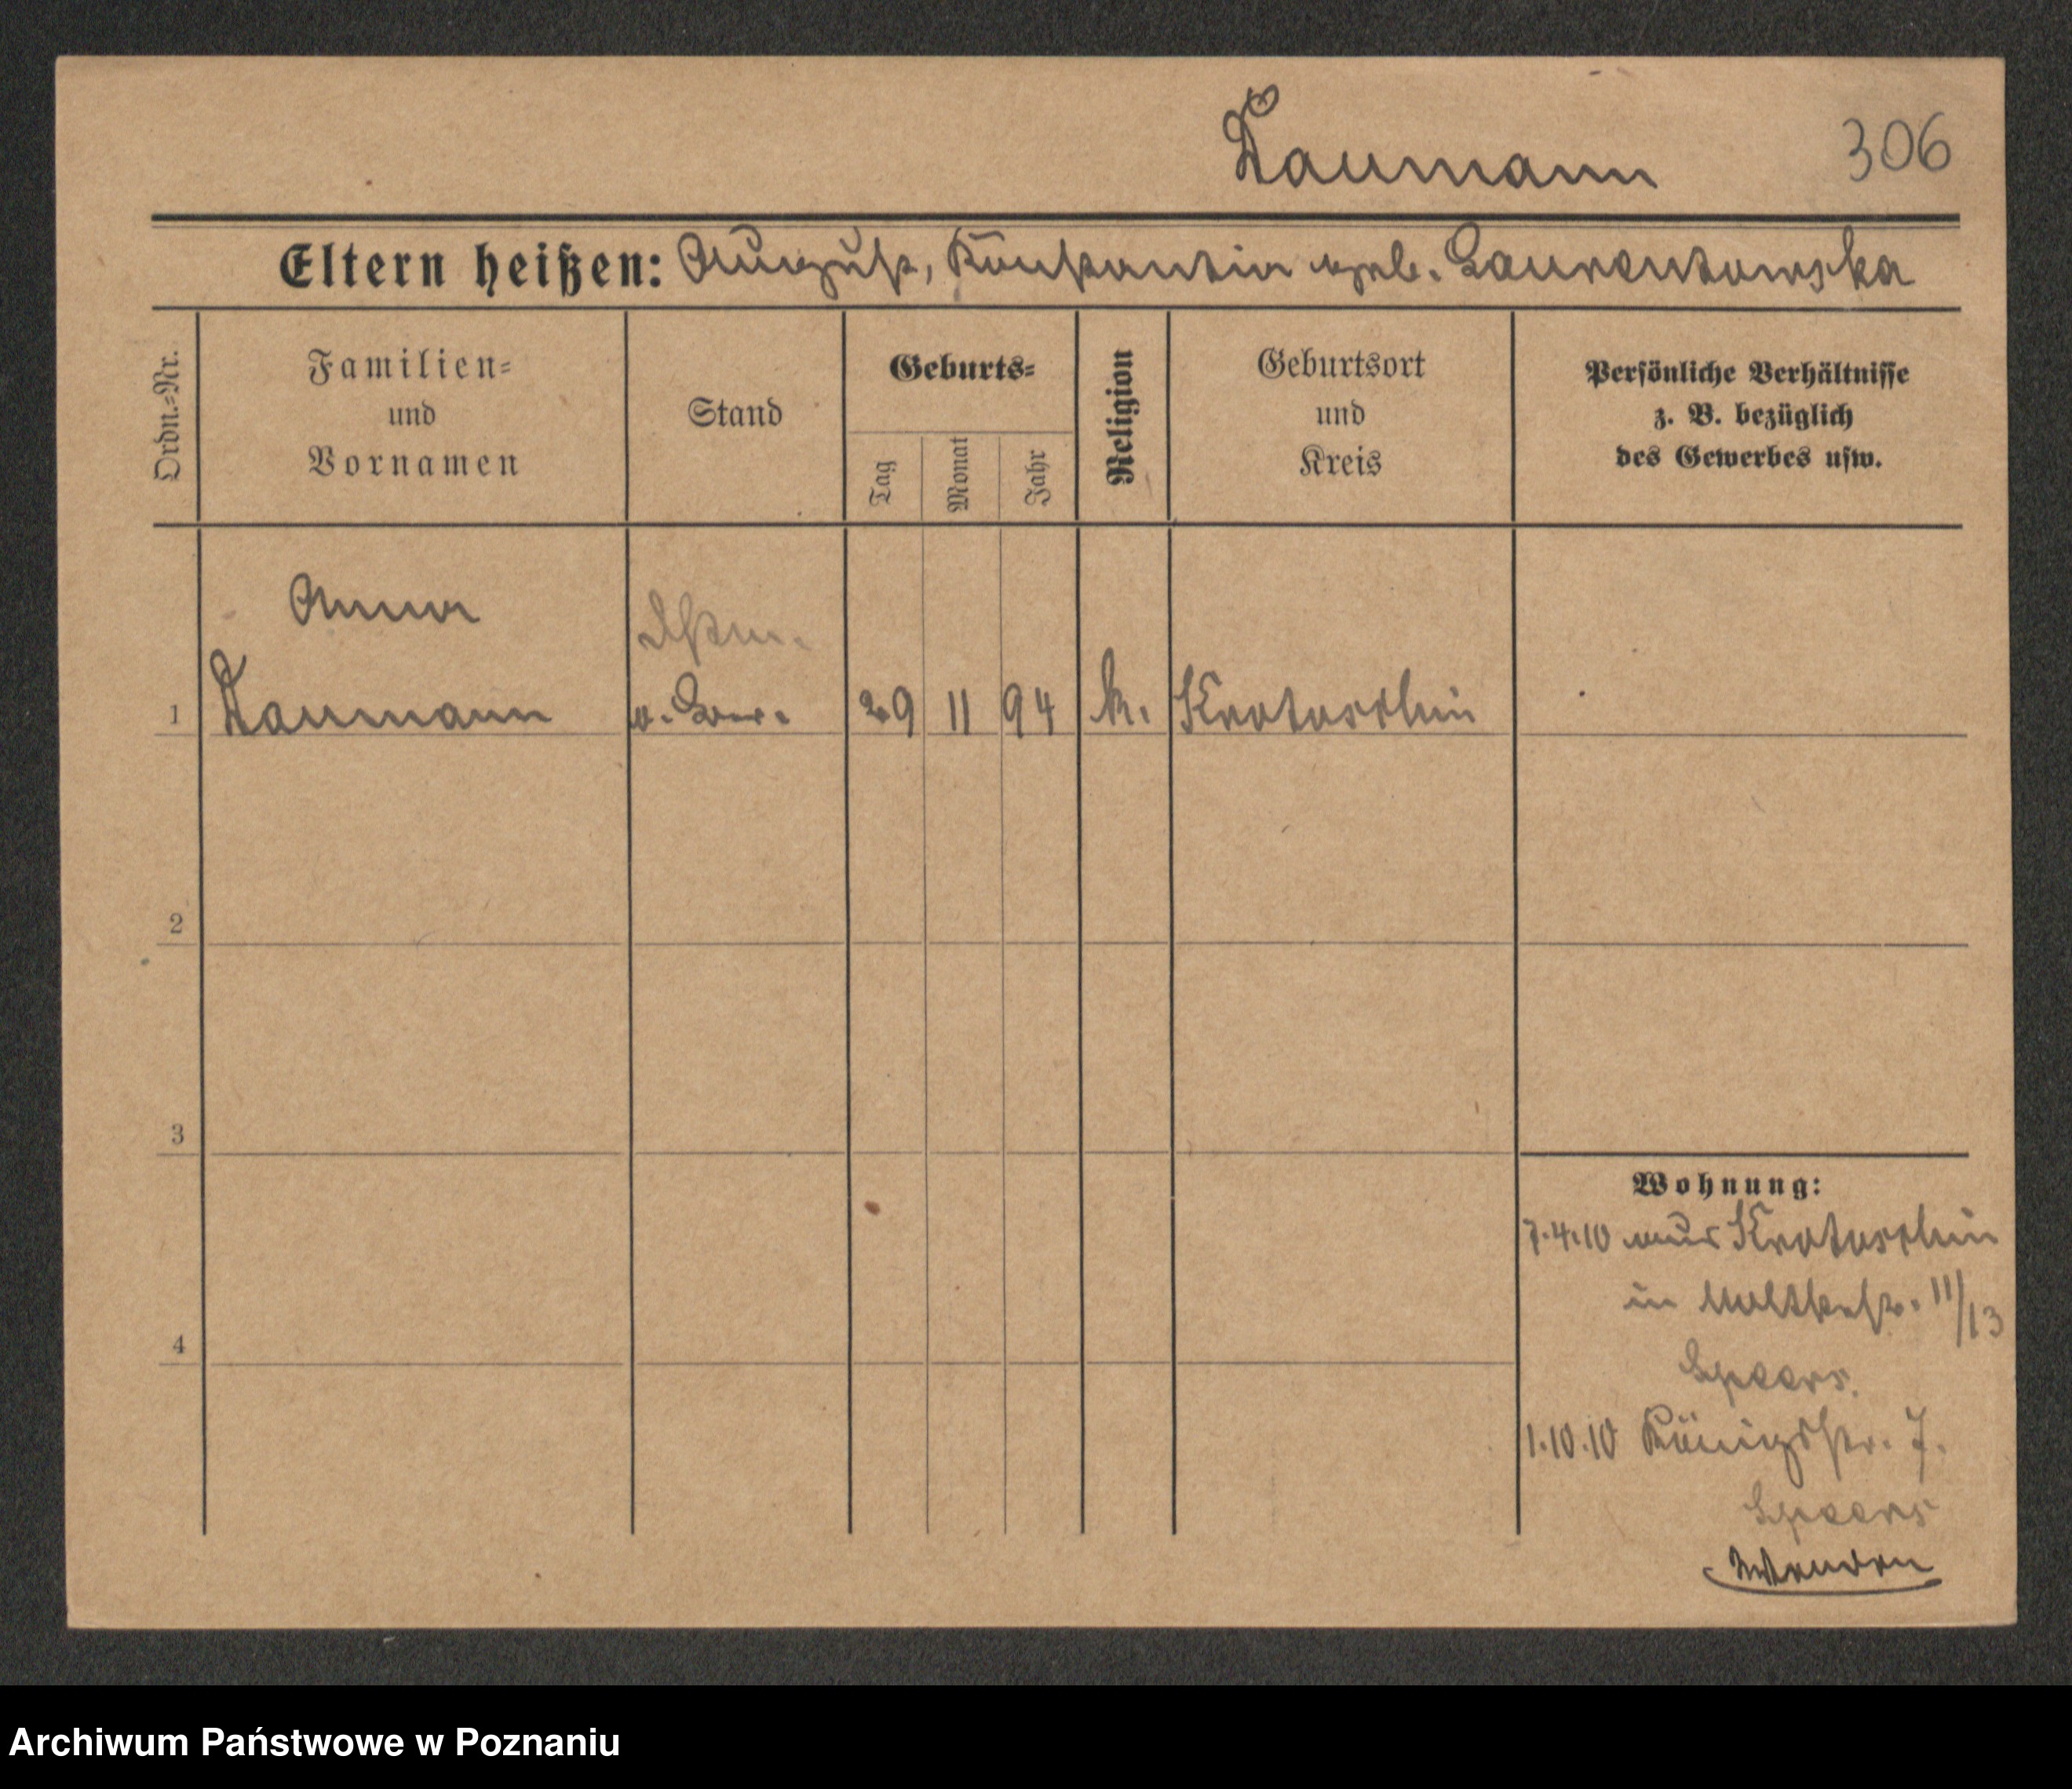 Daumann 306
Eltern heißen: August, Konstantia geb. Laurentowska
Ordn.-Nr.
Familien-
und
Vornamen
Stand
Geburts-
Tag
Monat
Jahr
Religion
Geburtsort
und
Kreis
Persönliche Verhältnisse
z. B. bezüglich
des Gewerbes usw.
Anna
Dstm.
1 Daumann 29 11 94 k. Krotoschin
2
3
4
Wohnung:
7.4.10 aus Krotoschin
in Moltkestr. 11/13
1.10.10 Königstr. 7.
Archiwum Państwowe w Poznaniu